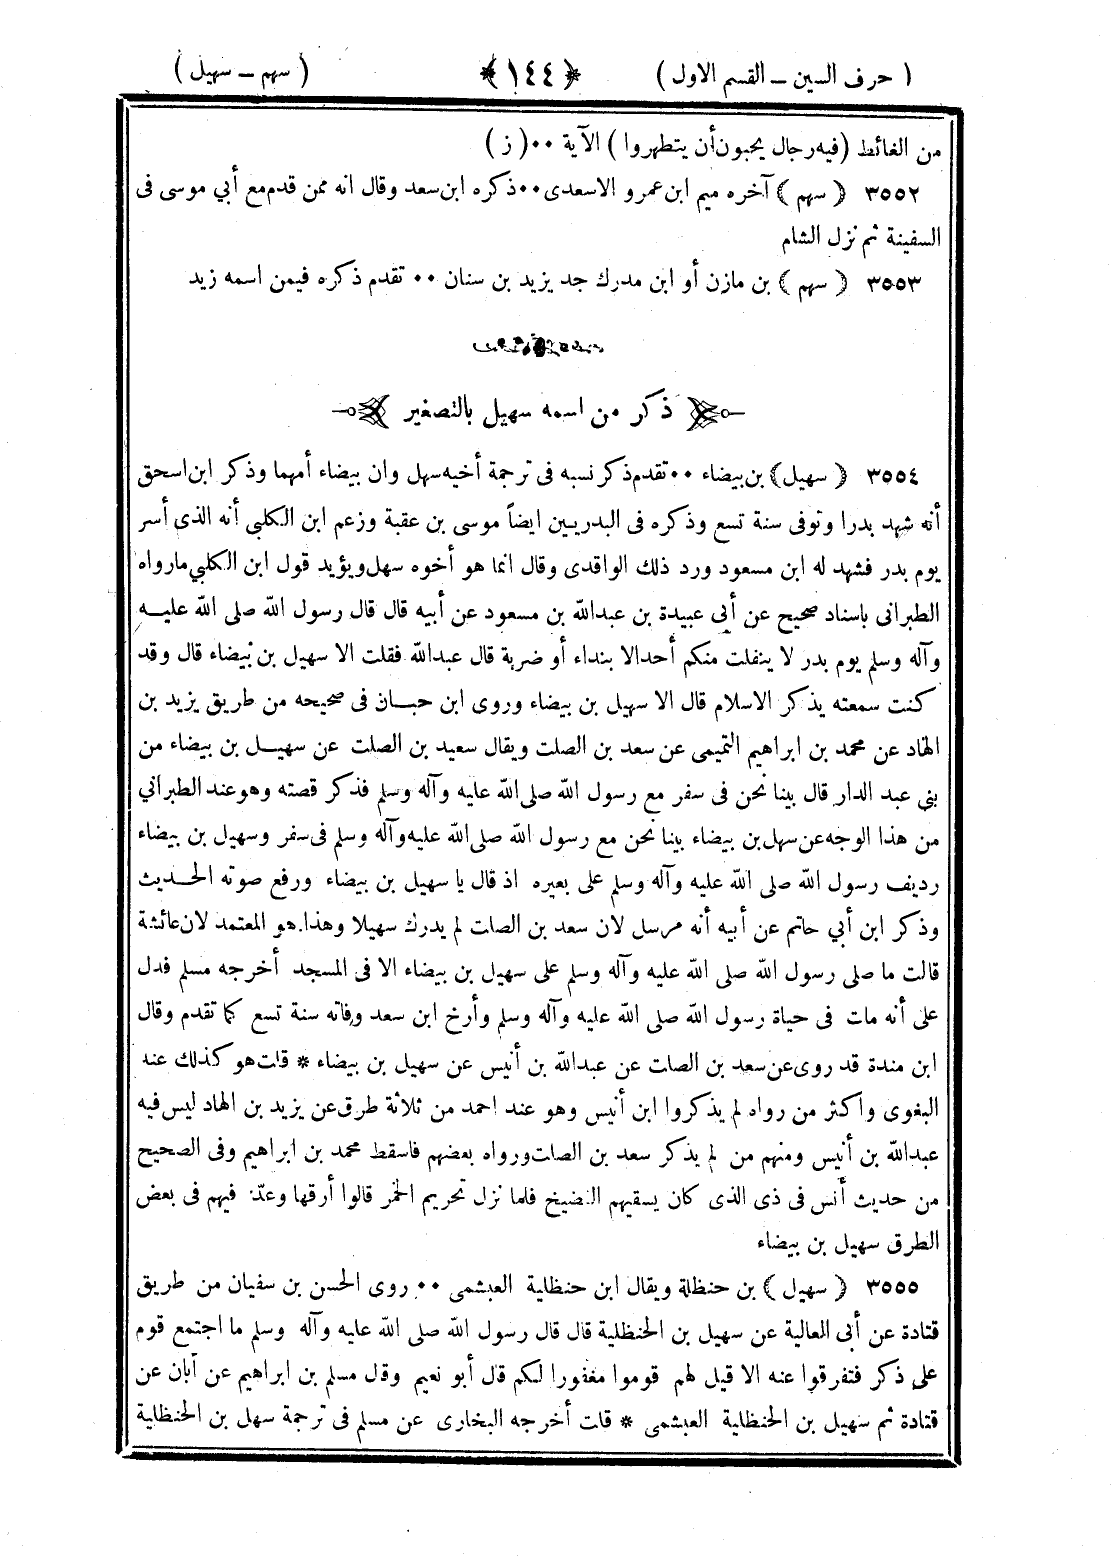 ( حرف السين ــ القسم الاول ) ﴿١٤٤﴾ ( سهم ــ سهيل )
من الغائط (فيه رجال يحبون أن يتطهروا ) الآية ٠٠( ز )
٣٥٥٢ ﴿ سهم ﴾ آخره ميم ابن عمرو الاسعدى٠٠ ذكره ابن سعد وقال انه ممن قدم مع أبي موسى فى
السفينة ثم نزل الشام
٣٥٥٣ ﴿ سهم ﴾ بن مازن أو ابن مدرك جد يزيد بن سنان ٠٠ تقدم ذكره فيمن اسمه زيد
ذكر من اسمه سهيل بالتصغير
٣٥٥٤ ﴿ سهيل﴾ بن بيضاء ٠٠ تقدم ذكر نسبه فى ترجمة أخيه سهل وان بيضاء أمهما وذكر ابن اسحق
أنه شهد بدرا وتوفى سنة تسع وذكره فى البدريين ايضاً موسى بن عقبة وزعم ابن الكلبي أنه الذى أسر
يوم بدر فشهد له ابن مسعود ورد ذلك الواقدى وقال انما هو أخوه سهل ويؤيد قول ابن الكلبي مارواه
الطبرانى باسناد صحيح عن أبي عبيدة بن عبدالله بن مسعود عن أبيه قال قال رسول الله صلى الله عليه
وآله وسلم يوم بدر لا ينفلت منكم أحد الا بنداء أو ضربة قال عبدالله فقلت الا سهيل بن بيضاء قال وقد
كنت سمعته يذكر الاسلام قال الا سهيل بن بيضاء وروى ابن حبان فى صحيحه من طريق يزيد بن
الهاد عن محمد بن ابراهيم التميمى عن سعد بن الصلت ويقال سعيد بن الصلت عن سهيل بن بيضاء من
بني عبد الدار قال بينا نحن فى سفر مع رسول الله صلى الله عليه وآله وسلم فذكر قصته وهو عند الطبراني
من هذا الوجه عن سهل بن بيضاء بينا نحن مع رسول الله صلى الله عليه وآله وسلم فى سفر وسهيل بن بيضاء
رديف رسول الله صلى الله عليه وآله وسلم على بعيره اذ قال يا سهيل بن بيضاء ورفع صوته الحديث
وذكر ابن أبي حاتم عن أبيه أنه مرسل لان سعد بن الصات لم يدرك سهيلا وهذا هو المعتمد لان عائشة
قالت ما صلى رسول الله صلى الله عليه وآله وسلم على سهيل بن بيضاء الا فى المسجد أخرجه مسلم فدل
على أنه مات فى حياة رسول الله صلى الله عليه وآله وسلم وأرخ ابن سعد وفاته سنة تسع كما تقدم وقال
ابن مندة قد روى عن سعد بن الصات عن عبدالله بن أنيس عن سهيل بن بيضاء * قات هو كذلك عند
البغوى واكثر من رواه لم يذكروا ابن أنيس وهو عند احمد من ثلاثة طرق عن يزيد بن الهاد ليس فيه
عبدالله بن أنيس ومنهم من لم يذكر سعد بن الصات ورواه بعضهم فاسقط محمد بن ابراهيم وفى الصحيح
من حديث أنس فى ذى الذى كان يسقيهم الفضيخ فلما نزل تحريم الخمر قالوا أرقها وعدّ فيهم فى بعض
الطرق سهيل بن بيضاء
٣٥٥٥ ﴿ سهيل ﴾ بن حنظلة ويقال ابن حنظلية العبشمى ٠٠ روى الحسن بن سفيان من طريق
قتادة عن أبى العالية عن سهيل بن الحنظلية قال قال رسول الله صلى الله عليه وآله وسلم ما اجتمع قوم
على ذكر فتفرقوا عنه الا قيل لهم قوموا مغفورا لكم قال أبو نعيم وقل مسلم بن ابراهيم عن أبان عن
قتادة ثم سهيل بن الحنظلية العبشمى * قات أخرجه البخارى عن مسلم فى ترجمة سهل بن الحنظلية